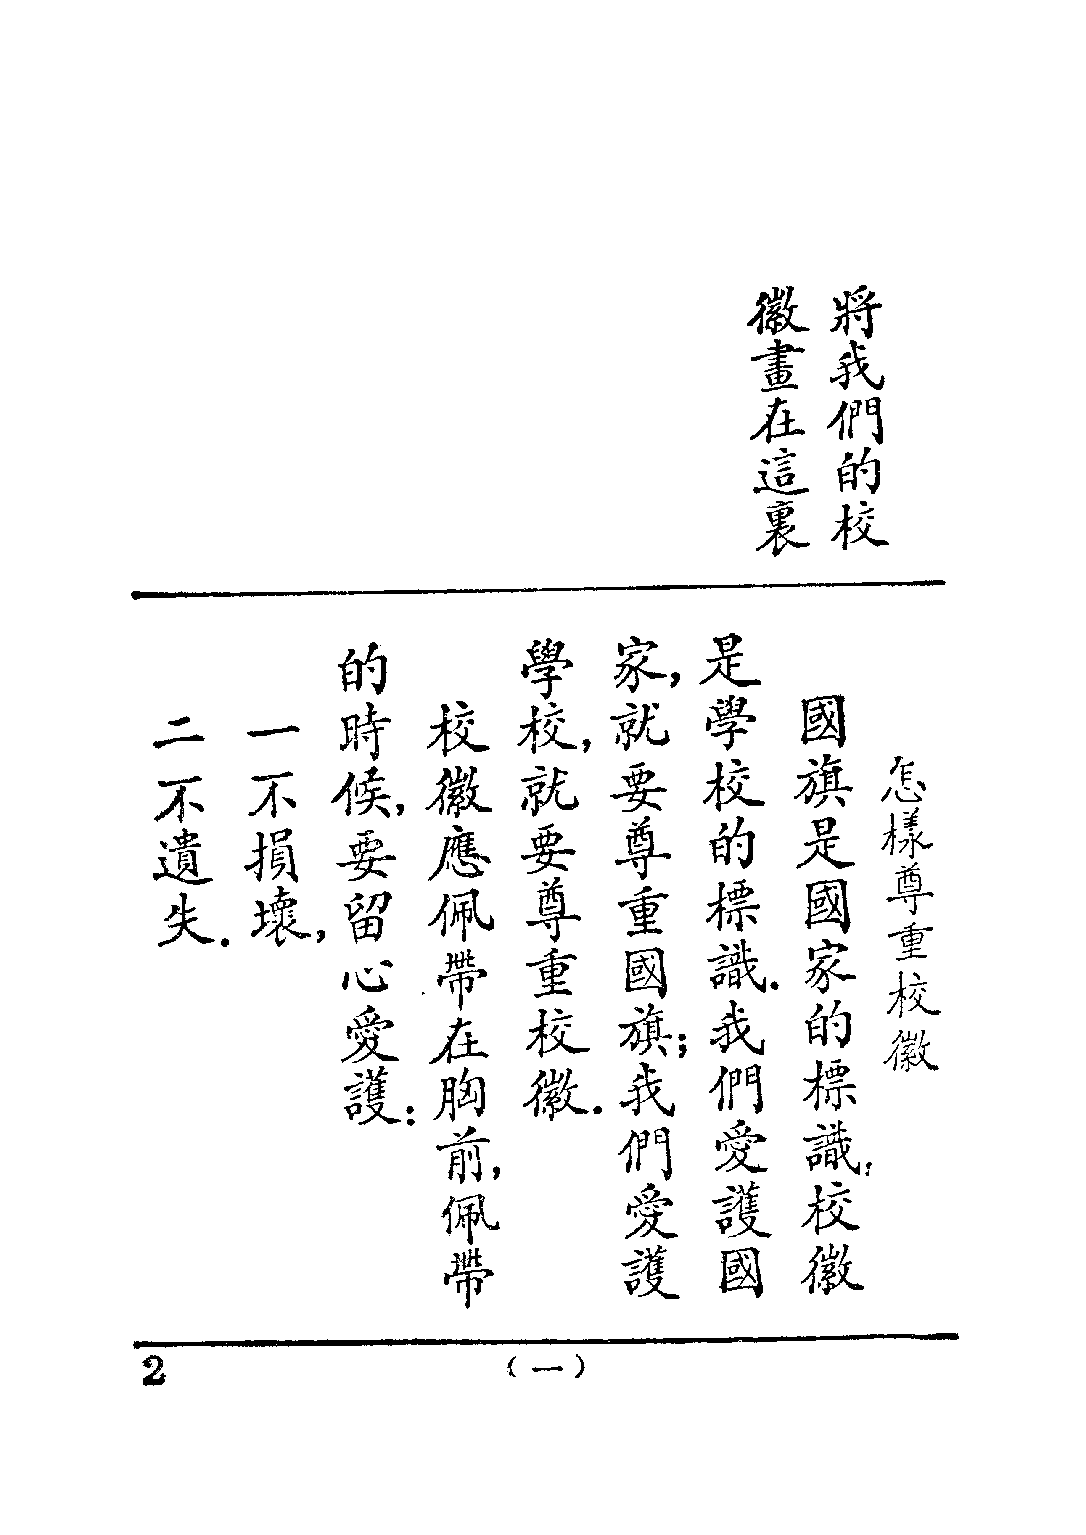 將我們的校
徽畫在這裏
怎樣尊重校徽
國旗是國家的標識;校徽
是學校的標識.我們愛護國
家,就要尊重國旗;我們愛護
學校,就要尊重校徽.
校徽應佩帶在胸前,佩帶
的時候,要留心愛護:
一不損壞,
二不遺失.
(一)
2